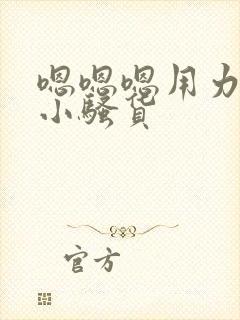 嗯嗯嗯用力
小骚货
官方